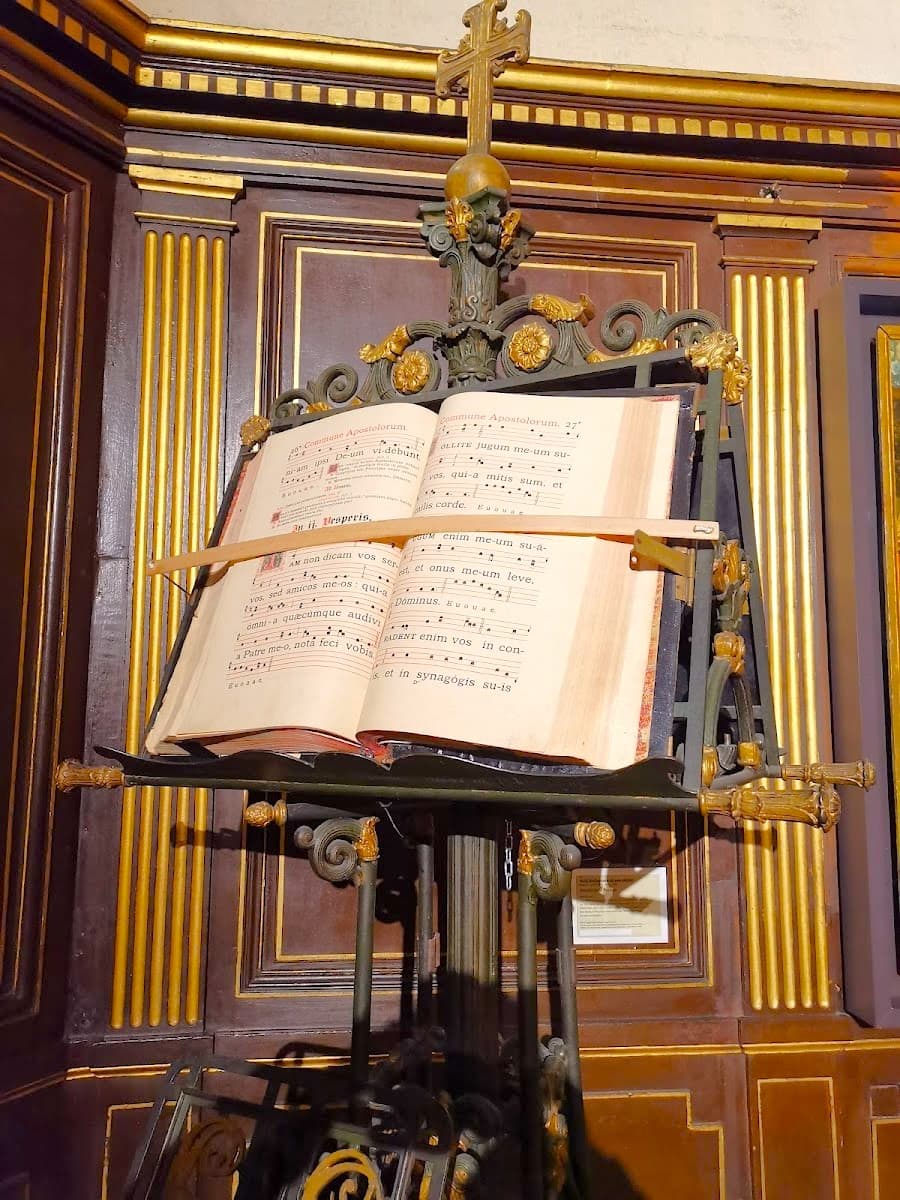 26* Commune Apostolorum.
ni-am ipsi De-um vi-debunt.
E u o u a e.
In ij. Vesperis.
AM non dicam vos ser-
vos, sed amicos me-os : qui-a
omni-a quæcúmque audivi
a Patre me-o, nota feci vobis.
E u o u a e.
Commune Apostolorum. 27*
OLLITE jugum me-um su-
vos, qui-a mitis sum, et
milis corde. E u o u a e.
GUM enim me-um su-a-
est, et onus me-um leve,
Dóminus. E u o u a e.
RADENT enim vos in con-
s, et in synagógis su-is